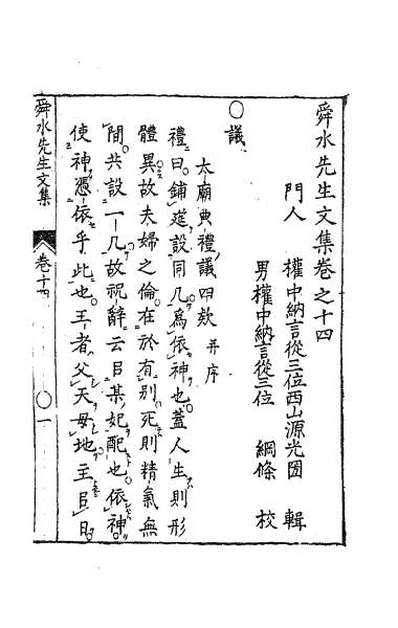 舜水先生文集卷之十四
門人 權中納言從三位西山源光圀 輯
男權中納言從三位 綱條 校
〇議
太廟典禮議四欵 并序
禮曰鋪筵設同几爲依神也蓋人生則形
體異故夫婦之倫在於有別死則精氣無
間共設一几故祝辭云㠯某妃配也依神
使神憑依乎此也王者父天母地主㠯日
舜水先生文集 卷十四 〇一